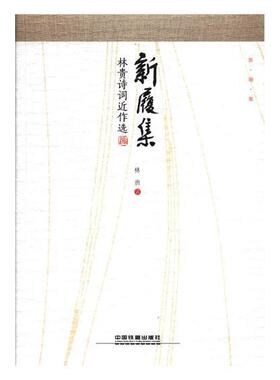 新履集
林贵诗词近作选
林贵
中国铁道出版社